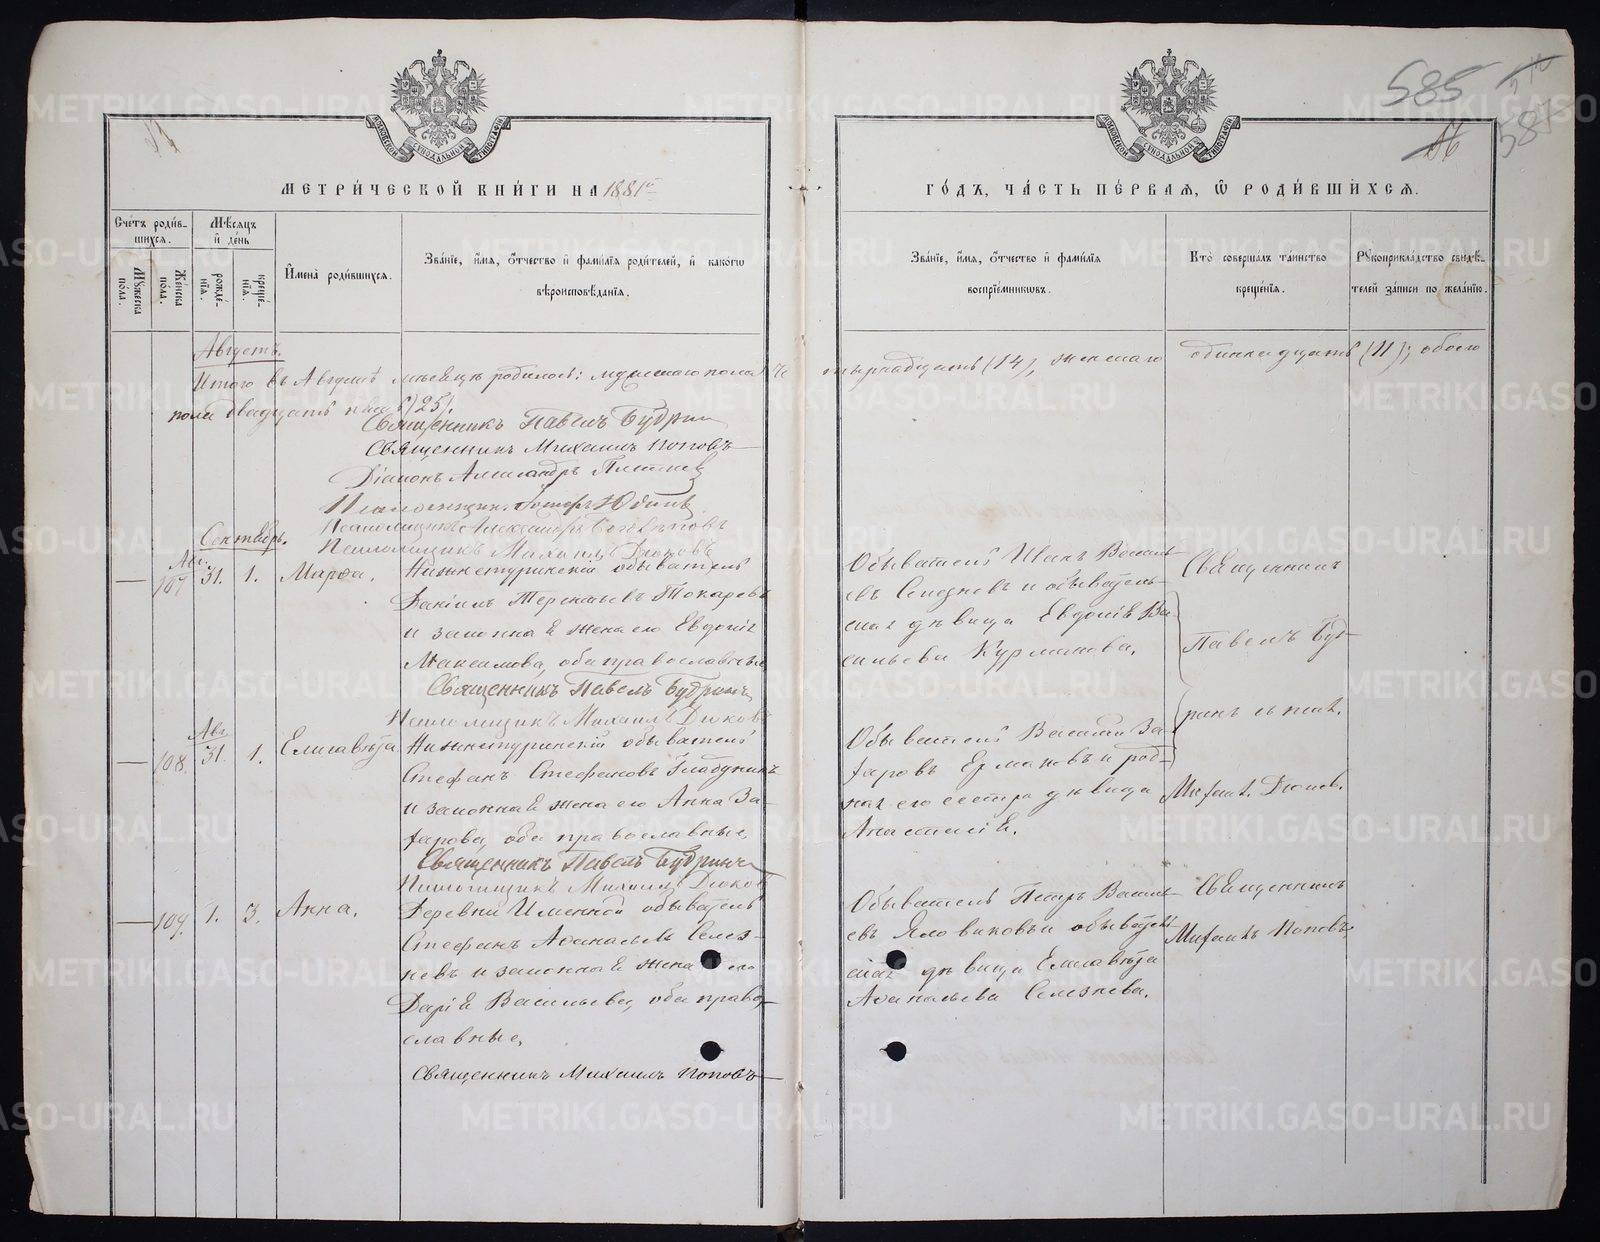 585
587
МЕТРИ́ЧЕСКОЙ КНИ́ГИ НА 1881й
ГО́ДЪ, ЧА́СТЬ ПЕ́РВАЯ, Ѿ РОДИ́ВШИХСЯ.
Сче́тъ роди́в-
шихся.
Мѣсяцъ
и де́нь
Мꙋ́жеска
по́ла.
Же́нска
по́ла.
рожде́-
нїя.
креще́-
нїя.
Имена̀ роди́вшихся.
Зва́нїе, и́мя, о́тчество и фами́лїя роди́телей, и како́гѡ
вѣроисповѣ́данїя.
Зва́нїе, и́мя, о́тчество и фами́лїя
воспрїе́мникѡвъ.
Кто̀ соверша́лъ та́инство
креще́нїя.
Рꙋкоприкла́дство свидѣ́-
телей за́писи по жела́нїю.
Августъ.
Итого въ Августѣ мѣсяцѣ родилось: мужескаго пола че
тырнадцать (14), женскаго одиннадцать (11); обоего
пола двадцать пять (25).
Священникъ Павелъ Будринъ
Священникъ Михаилъ Поповъ
Діаконъ Александръ
Псаломщикъ Юдинъ
Псаломщикъ Александръ
Псаломщикъ Михаилъ Дюковъ
Сентябрь.
Авг.
— 107 31. 1. Марѳа. Нижнетуринскій обыватель
Даніилъ Терентьевъ Токаревъ
и законная жена его Евдокія
Максимова, оба православные
Священникъ Павелъ Будринъ
Псаломщикъ Михаилъ Дюковъ
Обыватель Иванъ Василь-
евъ и обыватель-
ская дѣвица Евдокія Ва-
сильева Курманова.
Священникъ
Павелъ Буд-
ринъ съ псал.
Михаил. Дюков.
Авг.
— 108. 31. 1. Елисавета Нижнетуринскій обыватель
Стефанъ Стефановъ Гладунинъ
и законная жена его Анна За-
харова, оба православные
Священникъ Павелъ Будринъ
Псаломщикъ Михаилъ Дюковъ
Обыватель Василій За-
харовъ Ермаковъ и род-
ная его сестра дѣвица
Анастасія.
— 109. 1. 3. Анна. Деревни Именной обыватель
Стефанъ Аѳанасьевъ Селез-
невъ и законная жена его
Дарія Васильева, оба право-
славные,
Священникъ Михаилъ Поповъ
Обыватель Петръ Василь-
евъ Яловиковъ и обыватель-
ская дѣвица Елисавета
Аѳанасьева Селезнева.
Священникъ
Михаилъ Поповъ